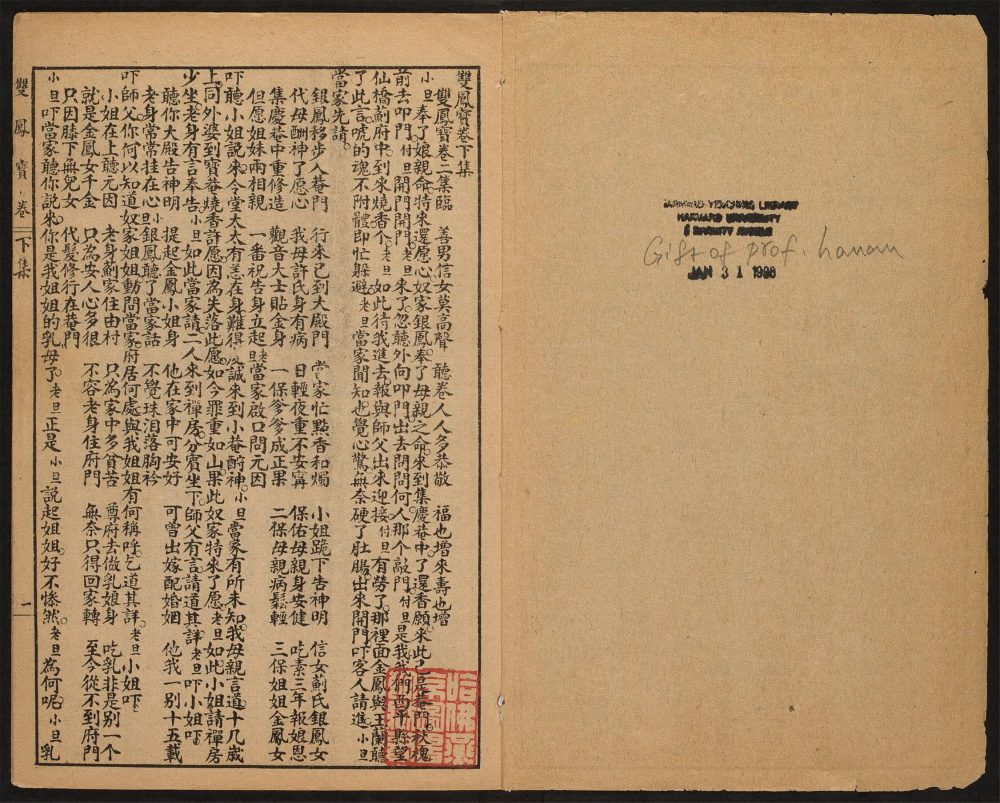 雙鳳寶卷下集
雙鳳寶卷二集臨　善男信女莫高聲　聽卷人人多恭敬　福也增來壽也增
小旦奉了娘親命特來還愿心奴家銀鳳奉了母親之命來到集慶菴中了還香願來此已是菴門秋槐
前去叩門付旦開門開門老旦來了忽聽外向叩門出去問問何人那个敲門付旦是我我們西平縣望
仙橋薊府中到來燒香个老旦如此待我進去報與師父出來迎接付旦有勞了那裡面金鳳與王蘭聽
了此言唬的魂不附體即忙躲避老旦當家聞知也覺心驚無奈硬了肚腸出來開門吓客人請進小旦
當家先請
銀鳳移步入菴門　行來已到大殿門　當家忙點香和燭　小姐跪下告神明　信女薊氏銀鳳女
代母酬神了愿心　我母許氏身有病　日輕夜重不安寧　保佑母親身安健　吃素三年報娘恩
集慶菴中重修造　觀音大士貼金身　一保爹爹成正果　二保母親病鬆輕　三保姐姐金鳳女
但愿姐妹兩相親　一番祝告身立起老旦當家啟口問元因
吓聽小姐說來今堂太太有恙在身難得誠來到小菴酧神小旦當家有所未知我母親言道十几歲
上同外婆到寶菴燒香許愿因為失落此愿如今罪重如山果此奴家特來了愿老旦如此小姐請禪房
少坐老身有言奉告小旦如此當家請二人來到禪房分賓坐下師父有言請道其詳老旦吓小姐吓
聽你大殿告神明　提起金鳳小姐身　他在家中可安好　可曾出嫁配婚姻　他我一別十五載
老身常常挂在心小旦銀鳳聽了當家話　不覺珠泪落胸衿
吓師父你何以知道奴家姐姐動問當家府居何處與我姐姐有何稱呼乞道其詳老旦小姐吓
小姐在上聽元因　老身薊家住由村　只為家中多貧苦　尊府去做乳娘身　吃乳非是別一个
就是金鳳女千金　只為安人心多狠　不容老身住府門　無奈只得回家轉　至今從不到府門
只因膝下無兒女　代髮修行在菴門
小旦吓當家聽你說來你是我姐姐的乳母了老旦正是小旦說起姐姐好不慘然老旦為何呢小旦乳
雙鳳寶卷　下集　一
HARVARD-YENCHING LIBRARY
HARVARD UNIVERSITY
2 DIVINITY AVENUE
Gift of prof. hanan
JAN 31 1998